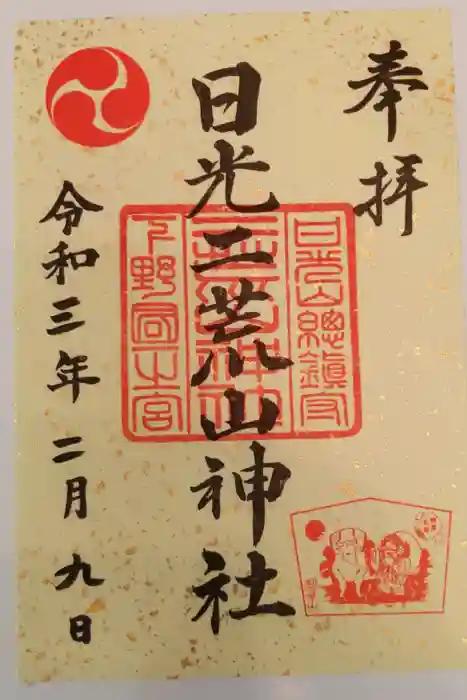 奉拝
日光二荒山神社
令和三年二月九日
日光山總鎮守
二荒山神社
下野国一之宮